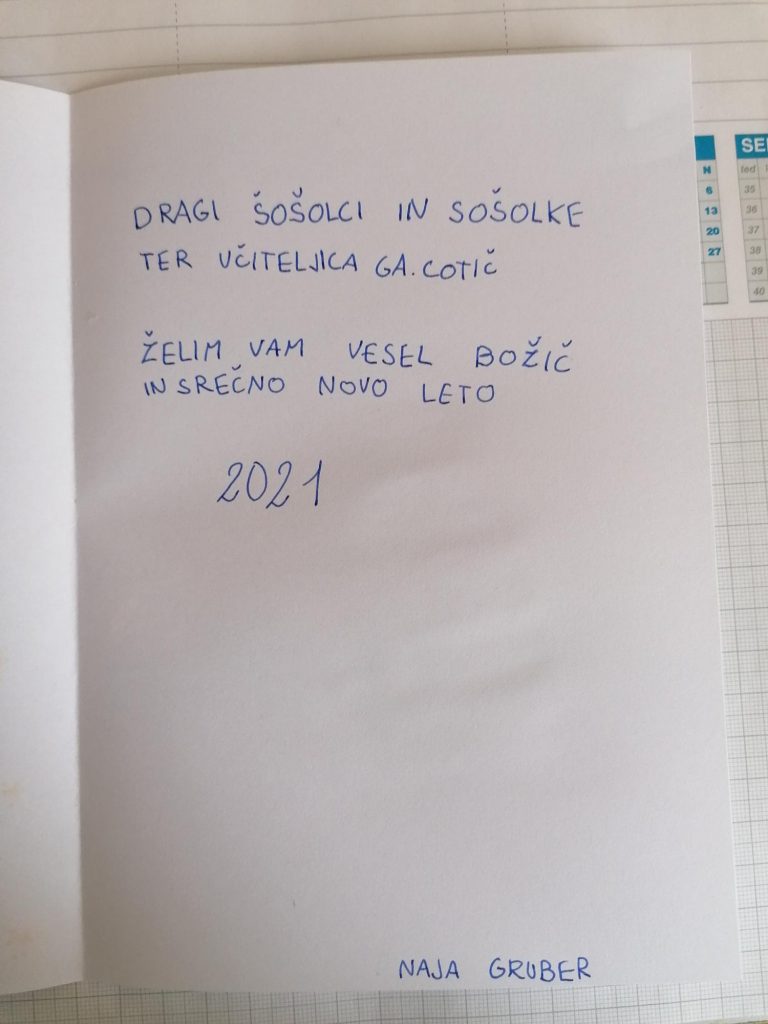 DRAGI ŠOŠOLCI IN SOŠOLKE
TER UČITELJICA GA. COTIČ
ŽELIM VAM VESEL BOŽIČ
IN SREČNO NOVO LETO
2021
NAJA GRUBER
N
6
13
20
27
SE
ted
35
36
37
38
39
40